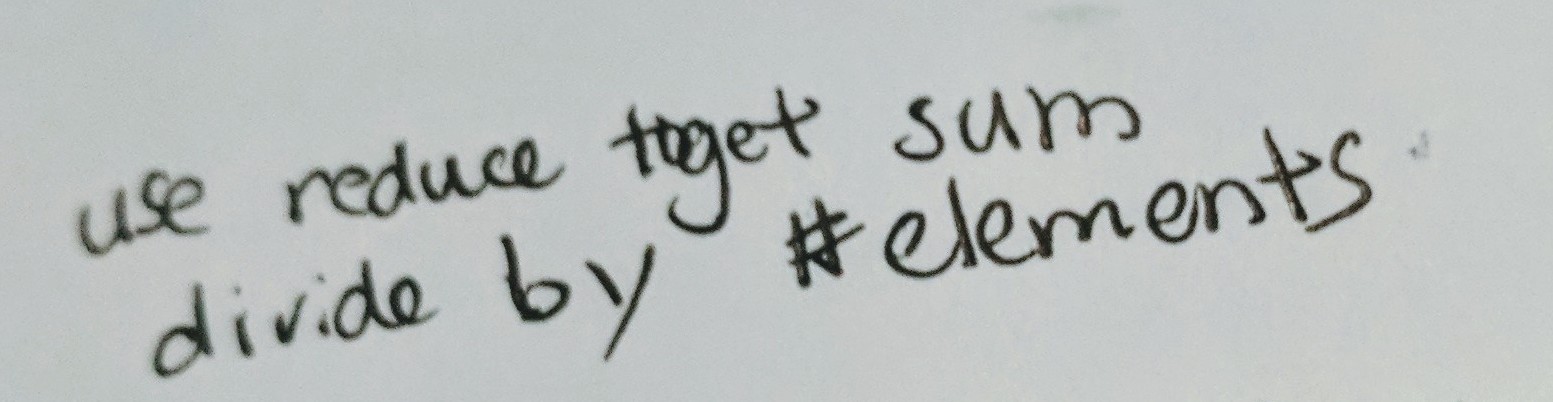 use reduce to get sum
divide by #elements